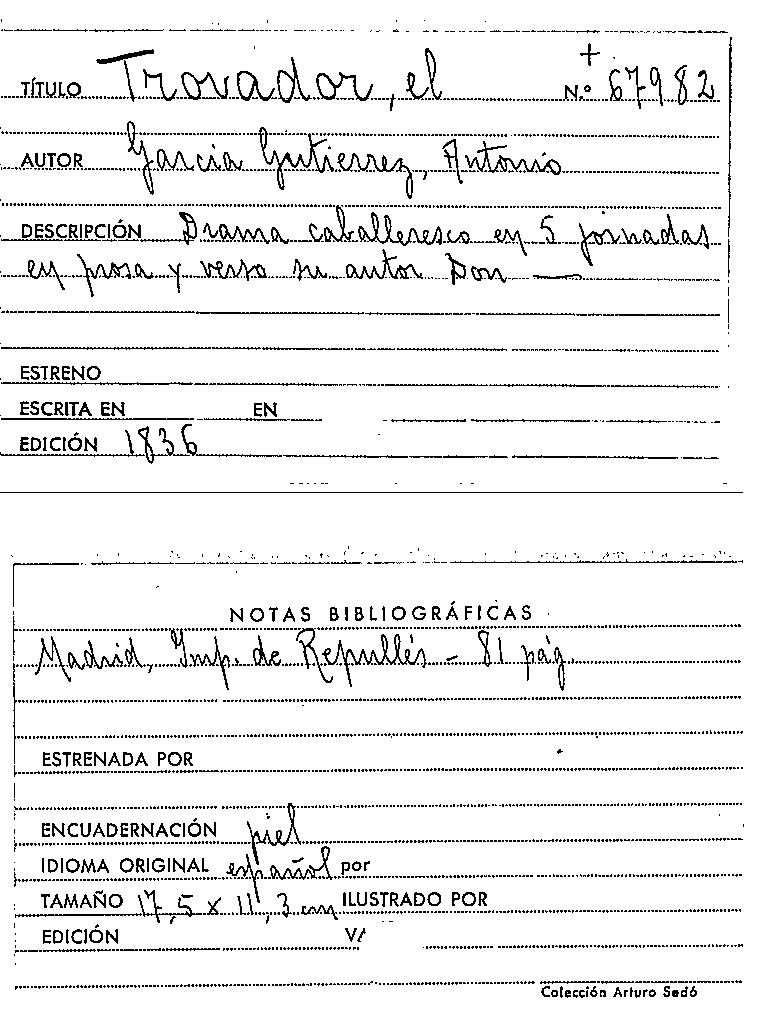 +
TÍTULO Trovador, el N.º 67982
AUTOR García Gutierrez, Antonio
DESCRIPCIÓN Drama caballeresco en 5 jornadas
en prosa y verso su autor Don —
ESTRENO
ESCRITA EN EN
EDICIÓN 1836
NOTAS BIBLIOGRÁFICAS
Madrid, Imp. de Repullés - 81 pág.
ESTRENADA POR
ENCUADERNACIÓN piel
IDIOMA ORIGINAL español por
TAMAÑO 17,5 x 11,3 cm ILUSTRADO POR
EDICIÓN V/
Colección Arturo Sedó